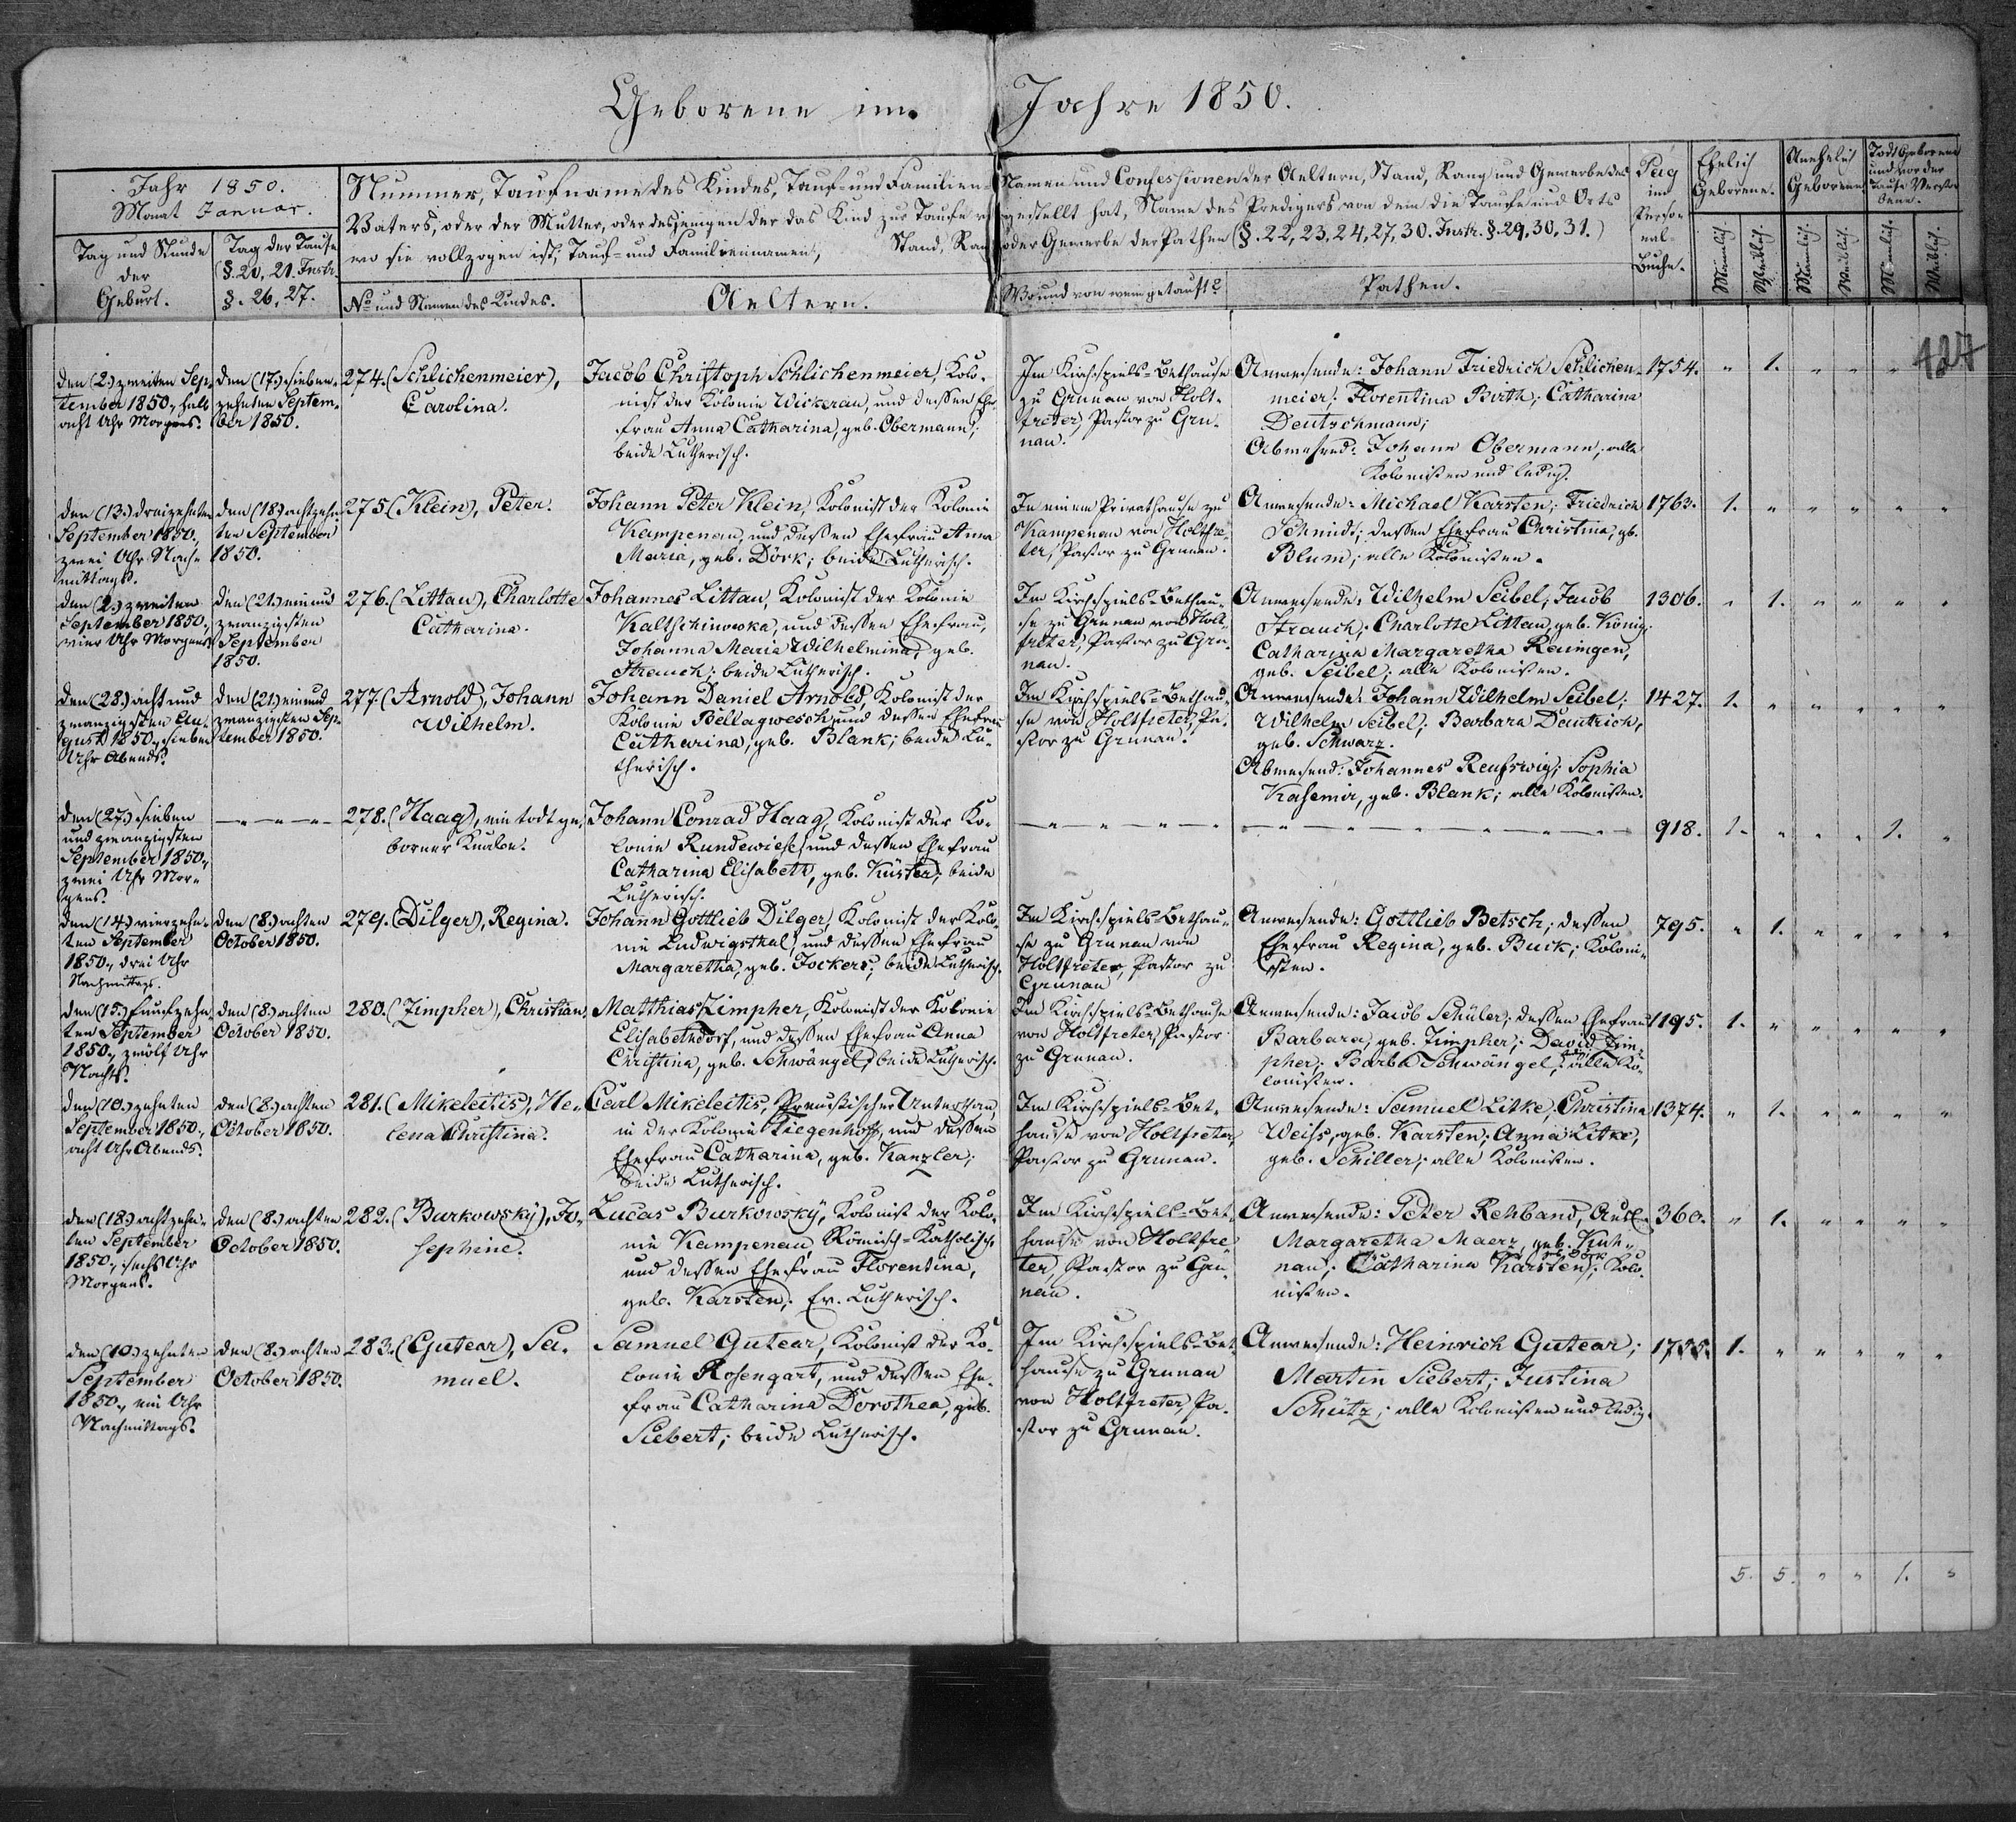 Geborene im Jahre 1850.
Jahr 1850.
Monat Januar.
Tag und Stunde
der
Geburt.
Tag der Taufe
(§. 20, 21. Instr.
§. 26, 27.
Nummer, Taufname des Kindes, Tauf- und Familien-
Vaters, oder der Mutter, oder desjenigen der das Kind zur Taufe
wo sie vollzogen ist, Tauf- und Familiennamen, Stand, Rang
No und Namen des Kindes.
Aeltern.
Namen und Confessionen der Aeltern, Stand, Rang und Gewerbe des
gestellt hat, Name des Predigers von dem die Taufe und Orts
oder Gewerbe der Pathen (§. 22, 23, 24, 27, 30. Instr. §. 29, 30, 31.)
Wo und von wem getauft?
Pathen.
Pag
im
Perso-
nal-
Buche.
Ehelich
Geborene.
Unehelich
Geborene
Todt Geborene
und vor der
Taufe Verstor-
bene.
Männlich.
Weiblich.
Männlich.
Weiblich.
Männlich.
Weiblich.
427
den (2.) zweiten Sep-
tember 1850., halb
acht Uhr Morgens.
den (17.) sieben-
zehnten Septem-
ber 1850.
274. (Schlichenmeier),
Carolina.
Jacob Christoph Schlichenmeier, Kolo-
nist der Kolonie Wickerau, und dessen Ehe-
frau Anna Catharina, geb. Obermann;
beide Lutherisch.
Im Kirchspiels-Bethause
zu Grunau von Holt-
freter, Pastor zu Gru-
nau.
Anwesende: Johann Friedrich Schlichen-
meier; Florentina Birth; Catharina
Deutschmann;
Abwesend: Johann Obermann, alle
Kolonisten und ledig.
1754. " 1. " " "
den (13.) dreizehnten
September 1850.,
zwei Uhr Nach-
mittags.
den (18.) achtzehn-
ten September
1850.
275. (Klein), Peter.
Johann Peter Klein, Kolonist der Kolonie
Kampenau, und dessen Ehefrau Anna
Maria, geb. Dörk; beide Lutherisch.
In einem Privathause zu
Kampenau von Holtfre-
ter, Pastor zu Grunau.
Anwesende: Michael Karsten; Friedrich
Schmidt; dessen Ehefrau Christina, geb.
Blum; alle Kolonisten.
1763. 1. " " " " "
den (2.) zweiten
September 1850.,
vier Uhr Morgens.
den (21.) ein und
zwanzigsten
September
1850.
276. (Littau), Charlotte
Catharina.
Johannes Littau, Kolonist der Kolonie
Kaltschinowka, und dessen Ehefrau,
Johanna Maria Wilhelmina, geb.
Strauch; beide Lutherisch.
Im Kirchspiels-Bethau-
se zu Grunau von Holt-
freter, Pastor zu Gru-
nau.
Anwesende: Wilhelm Seibel; Jacob
Strauch; Charlotte Littau, geb. König;
Catharina Margaretha Reimgen,
geb. Seibel; alle Kolonisten.
1306. " 1. " " " "
den (28.) acht und
zwanzigsten Au-
gust 1850., sieben
Uhr Abends.
den (21.) ein und
zwanzigsten Sep-
tember 1850.
277. (Arnold), Johann
Wilhelm.
Johann Daniel Arnold, Kolonist der
Kolonie Bellagwesch, und dessen Ehefrau
Catharina, geb. Blank; beide Lu-
therisch.
Im Kirchspiels-Bethau-
se von Holtfreter, Pa-
stor zu Grunau.
Anwesende: Johann Wilhelm Seibel;
Wilhelm Seibel; Barbara Dautrich,
geb. Schwarz.
Abwesend: Johannes Reufswig; Sophia
Kasemir, geb. Blank; alle Kolonisten.
1427. 1. " " " " "
den (27.) sieben
und zwanzigsten
September 1850.,
zwei Uhr Mor-
gens.
278. (Haag), ein todt ge-
borner Knabe.
Johann Conrad Haag, Kolonist der Ko-
lonie Rundewiese, und dessen Ehefrau
Catharina Elisabeth, geb. Küster; beide
Lutherisch.
918. 1. " " " 1. "
den (14.) vierzehn-
ten September
1850., drei Uhr
Nachmittags.
den (8.) achten
October 1850.
279. (Dilger), Regina.
Johann Gottlieb Dilger, Kolonist der Kolo-
nie Ludwigsthal, und dessen Ehefrau
Margaretha, geb. Jockers; beide Lutherisch.
Im Kirchspiels-Bethau-
se zu Grunau von
Holtfreter, Pastor zu
Grunau
Anwesende: Gottlieb Betsch; dessen
Ehefrau Regina, geb. Buck; Koloni-
sten.
795. " 1. " " " "
den (15.) fünfzehn-
ten September
1850., zwölf Uhr
Nachts.
den (8.) achten
October 1850.
280. (Zimpher), Christian.
Matthias Zimpher, Kolonist der Kolonie
Elisabethdorf, und dessen Ehefrau Anna
Christina, geb. Schwängel; beide Lutherisch.
Im Kirchspiels-Bethause
von Holtfreter, Pastor
zu Grunau.
Anwesende: Jacob Schüler; dessen Ehefrau
Barbara, geb. Zimpher; David Zim-
pher; Barba Schwängel, alle Ko-
lonisten.
1195. 1. " " " " "
den (10.) zehnten
September 1850.,
acht Uhr Abends.
den (8.) achten
October 1850.
281. (Mikeleitis), He-
lena Christina.
Carl Mikeleitis, Preussischer Unterthan,
in der Kolonie Tiegenhoff, und dessen
Ehefrau Catharina, geb. Kanzler;
beide Lutherisch.
Im Kirchspiels-Bet-
hause von Holtfreter,
Pastor zu Grunau.
Anwesende: Samuel Litke; Christina
Weiss, geb. Karsten; Anna Litke,
geb. Schiller; alle Kolonisten.
1374. " 1. " " " "
den (18.) achtzehn-
ten September
1850., sechs Uhr
Morgens.
den (8.) achten
October 1850.
282. (Burkowsky), Jo-
sephine.
Lucas Burkowsky, Kolonist der Kolo-
nie Kampenau, Römisch-Katholisch
und dessen Ehefrau Florentina,
geb. Karsten; Ev. Lutherisch.
Im Kirchspiels-Bet-
hause von Holtfre-
ter, Pastor zu Gru-
nau.
Anwesende: Peter Rehband,
Margaretha Maerz, geb. Kuh-
nau; Catharina Karsten, geb. Dörk; Kolo-
nisten.
360. " 1. " " " "
den (10.) zehnten
September
1850., ein Uhr
Nachmittags.
den (8.) achten
October 1850.
283. (Gutear), Sa-
muel.
Samuel Gutear, Kolonist der Ko-
lonie Rosengart, und dessen Ehe-
frau Catharina Dorothea, geb.
Siebert; beide Lutherisch.
Im Kirchspiels-Bet-
hause zu Grunau
von Holtfreter, Pa-
stor zu Grunau.
Anwesende: Heinrich Gutear;
Martin Siebert; Justina
Schütz; alle Kolonisten und ledig.
1. " " " " "
5. 5. " " 1. "